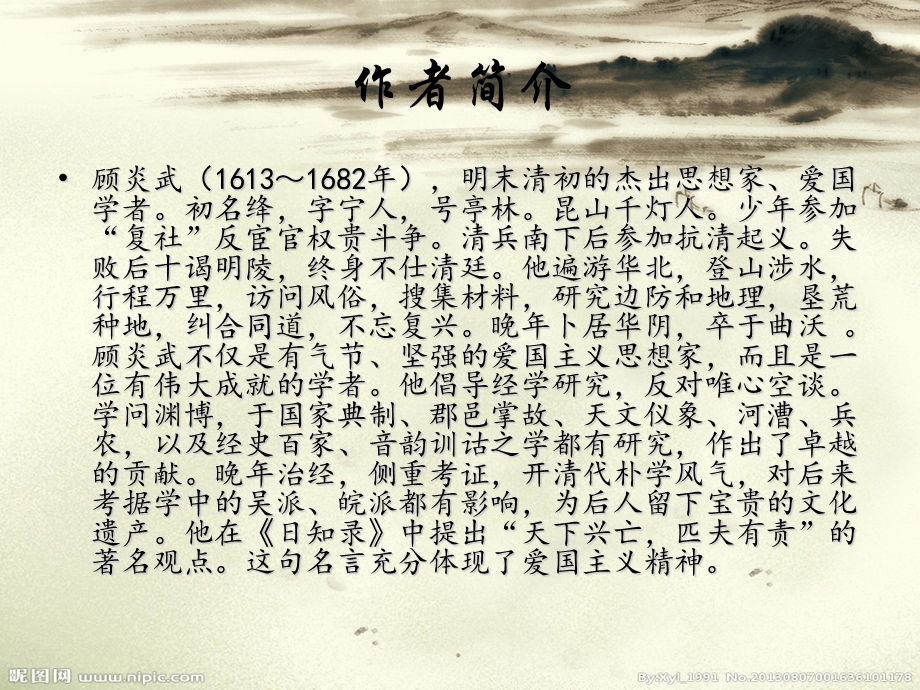 作者简介
• 顾炎武（1613～1682年），明末清初的杰出思想家、爱国
学者。初名绛，字宁人，号亭林。昆山千灯人。少年参加
“复社”反宦官权贵斗争。清兵南下后参加抗清起义。失
败后十谒明陵，终身不仕清廷。他遍游华北，登山涉水，
行程万里，访问风俗，搜集材料，研究边防和地理，垦荒
种地，纠合同道，不忘复兴。晚年卜居华阴，卒于曲沃 。
顾炎武不仅是有气节、坚强的爱国主义思想家，而且是一
位有伟大成就的学者。他倡导经学研究，反对唯心空谈。
学问渊博，于国家典制、郡邑掌故、天文仪象、河漕、兵
农，以及经史百家、音韵训诂之学都有研究，作出了卓越
的贡献。晚年治经，侧重考证，开清代朴学风气，对后来
考据学中的吴派、皖派都有影响，为后人留下宝贵的文化
遗产。他在《日知录》中提出“天下兴亡，匹夫有责”的
著名观点。这句名言充分体现了爱国主义精神。
昵图网 www.nipic.com
By:Xyl_1991 No.20130807001636101178